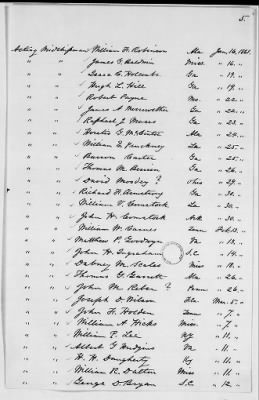 5.
Acting Midshipman William F. Robinson Ala Jan. 16, 1861.
" " James G. Baldwin Miss " 16. "
" " Isaac C. Holcombe Ga " 19. "
" " Hugh L. Hill Ga " 19. "
" " Robert Payne Mo. " 22. "
" " James A. Merriwether Ga " 22. "
" " Raphael J. Moses Ga " 23. "
" " Horatio G. McClintoc Ala " 24. "
" " William L. Pinckney La " 25. "
" " Barron Carter Ga " 25. "
" " Thomas M. Berrien Ga " 26. "
" " David Mosely ? Ohio " 29. "
" " Richard F. Armstrong Ga " 30. "
" " William V. Comstock La " 30. "
" " John H. Comstock Ark " 30. "
" " William W. Carnes Tenn Feb. 13. "
" " Matthew P. Goodwyn Va " 13. "
" " John H. Ingraham S.C. " 14. "
" " Dabney M. Scales Miss " 18. "
" " Thomas G. Garrett Ala " 26. "
" " John M. Reber ? Penn " 26. "
" " Joseph D. Wilson Fla Mar. 5. "
" " John F. Holden Tenn " 7. "
" " William A. Hicks Miss " 7. "
" " William F. Lee Ky " 11. "
" " Albert G. Hudgins Va " 11. "
" " H. H. Daugherty Ky " 11. "
" " William R. Dalton Miss " 11. "
" " George D. Bryan S.C. " 12. "